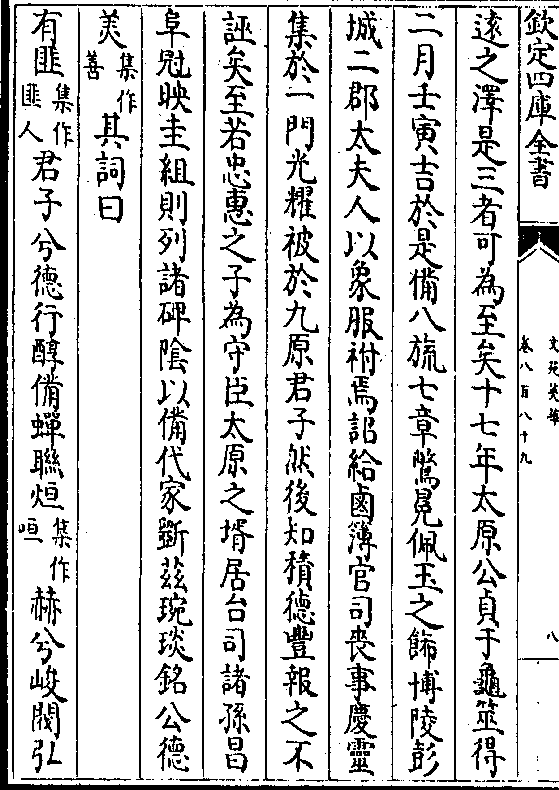 欽定四庫全書
文苑英華
卷八百八十九
八
逺之澤是三者可為至矣十七年太原公貞于龜筮得
二月壬寅吉於是備八旒七章驚冕佩玉之飾博陵彭
城二郡太夫人以象服祔焉詔給鹵簿官司喪事慶靈
集於一門光耀被於九原君子然後知積德豐報之不
誣矣至若忠惠之子為守臣太原之壻居台司諸孫昌
阜冠映圭組則列諸碑陰以備代家斵茲琬琰銘公德
羙集作善其詞曰
有匪集作匪人君子兮德行醇備蟬聯烜集作咺赫兮峻閥弘